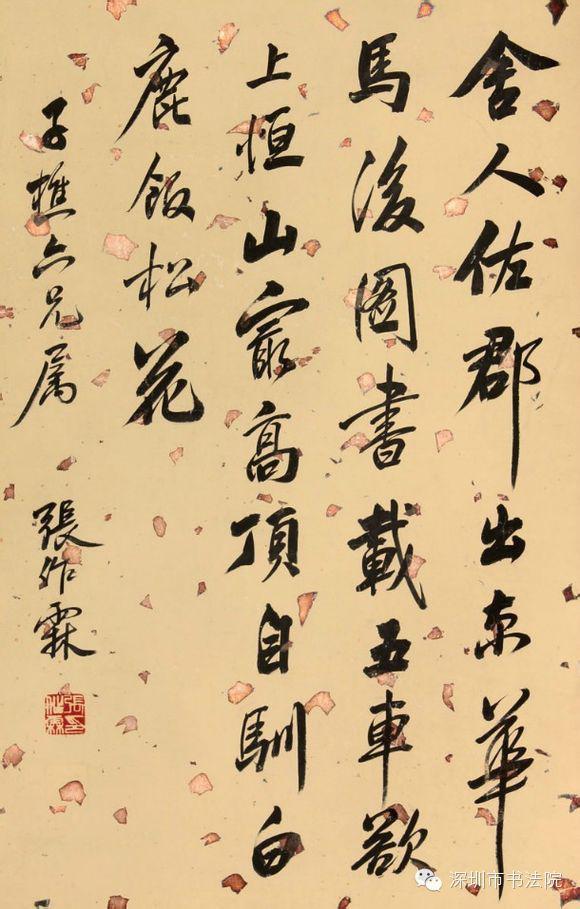 舍人佐郡出京華
馬後圖書載五車欲
上恒山最高頂自馴白
鹿飯松花
子樵六兄属
張作霖
張作霖印
深圳市书法院